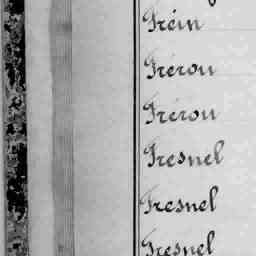 Frém
Frérou
Frérou
Fresnel
Fresnel
Fresnel